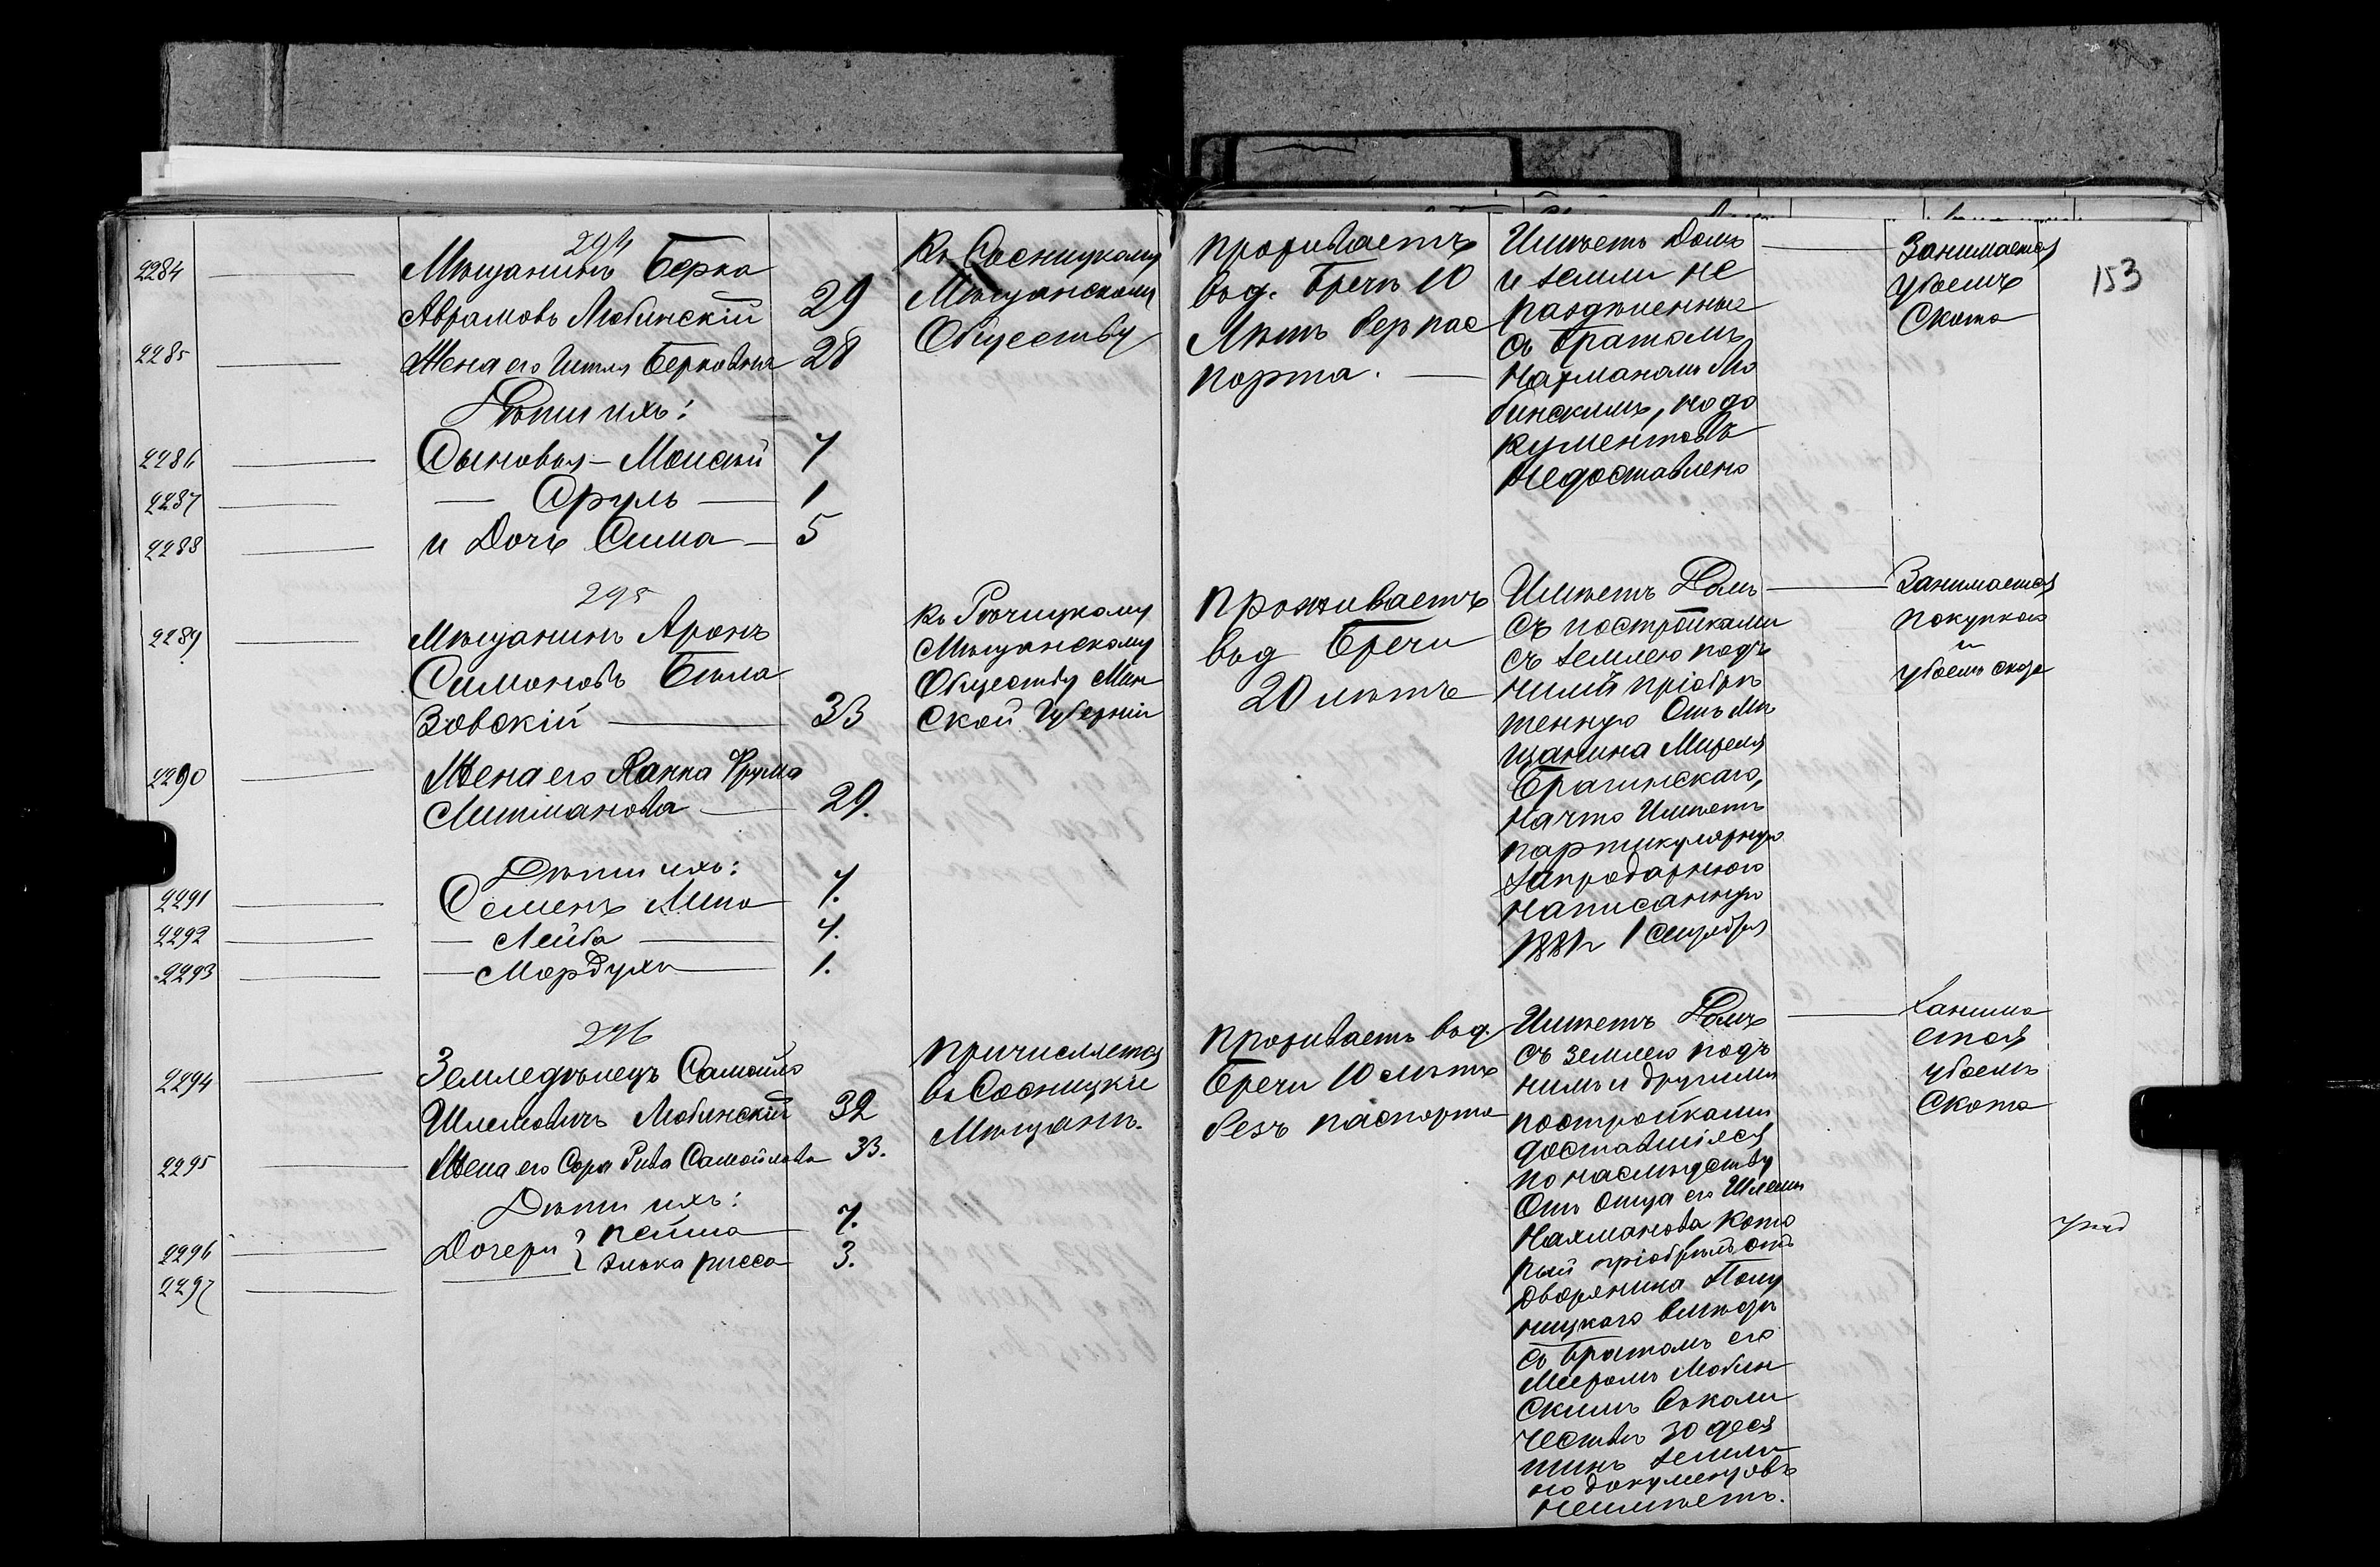 294
2284 Мѣщанинъ Берка
Аврамовъ Любинскій 29
2285 Жена его Ципля Берковна 28
Дѣти ихъ:
2286 Сыновья – Моисей 7
2287 — Сруль — 1
2288 и Дочь Сима — 5
Къ Сосницкому
Мѣщанскому
Обществу
проживаетъ
въ д. Бречѣ 10
Лѣтъ безъ пас
порта. —
Имѣетъ домъ
и земли не
раздѣленные
съ братомъ
Нахманомъ Лю
бинскимъ, но до
кументовъ
недоставлено
Занимается
убоемъ
Скота
153
295
2289 Мѣщанинъ Аронъ
Симоновъ Била
Зовскій — 33
2290 Жена его Ханна Фрума
Литманова — 29.
Дѣти ихъ:
2291 Семенъ Липа 7.
2292 — Лейба — 4.
2293 — Мордухъ — 1.
Къ Рѣчицкому
Мѣщанскому
Обществу Мин
Ской Губерніи
Проживаетъ
въ д Бречи
20 лѣтъ
Имѣетъ Домъ
Съ постройками
съ землею подъ
ними пріобрѣ
тенную Отъ Мѣ
щанина Мирела
Брагинскаго,
на что Имѣетъ
партикулярную
запродажную
написанную
1881 г 1 Сентября
Занимается
покупкою
и
убоемъ скота
296
2294 Земледѣлецъ Самойло
Шлемовичъ Любинскій 32
2295 Жена его Сора Рива Самойлова 33.
Дѣти ихъ:
2296 Дочери { Пейша 7.
2297 Элька рисса 3.
причисляется
въ Сосницкіе
Мѣщане.
Проживаетъ въ д.
Бречи 10 лѣтъ
безъ паспорта
Имѣетъ Домъ
съ землею подъ
нимъ и другими
постройками
доставшіяся
по наслѣдству
Отъ отца его Шлемы
Нахманова Кото
рый пріобрѣлъ отъ
дворянина Полу
ницкаго вмѣстѣ
съ братомъ его
Мееромъ Любин
Скимъ въ коли
чествѣ 30 деся
тинъ земли
но документовъ
неимѣетъ.
Занима
ется
убоемъ
Скота